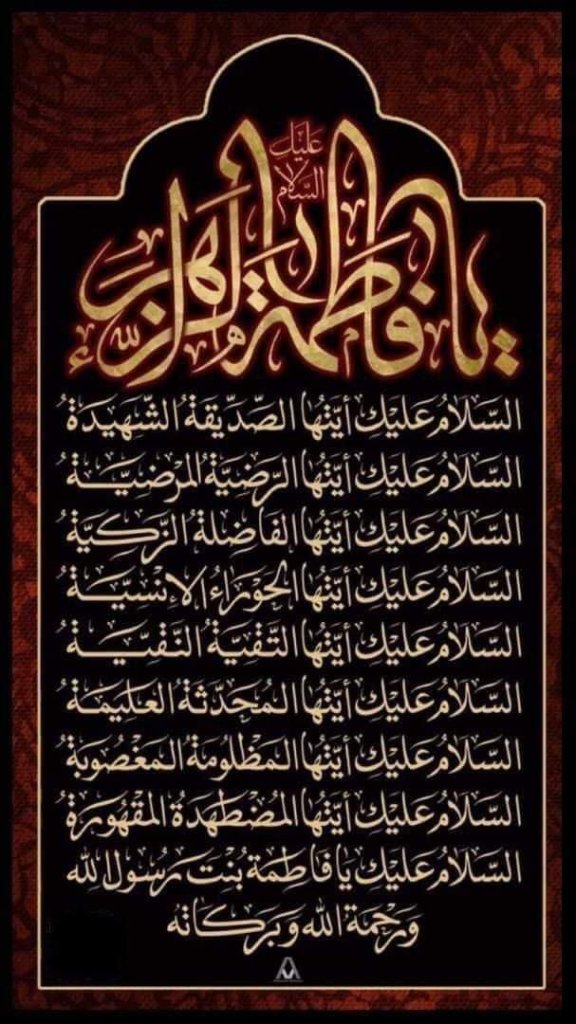 يا فاطمة الزهراء
السلام عليك
السَّلامُ عَلَيْكِ أيَّتُهَا الصِّدِّيقَةُ الشَّهِيدَةُ
السَّلامُ عَلَيْكِ أيَّتُهَا الرَّضِيَّةُ المَرْضِيَّةُ
السَّلامُ عَلَيْكِ أيَّتُهَا الفَاضِلَةُ الزَّكِيَّةُ
السَّلامُ عَلَيْكِ أيَّتُهَا الحَوْرَاءُ الإنْسِيَّةُ
السَّلامُ عَلَيْكِ أيَّتُهَا التَّقِيَّةُ النَّقِيَّةُ
السَّلامُ عَلَيْكِ أيَّتُهَا المُحَدَّثَةُ العَلِيمَةُ
السَّلامُ عَلَيْكِ أيَّتُهَا المَظْلُومَةُ المَغْصُوبَةُ
السَّلامُ عَلَيْكِ أيَّتُهَا المُضْطَهَدَةُ المَقْهُورَةُ
السَّلامُ عَلَيْكِ يَا فَاطِمَة بُنْتَ رَسُولِ الله
وَرَحْمَةُ الله وَبَرَكَاتُه